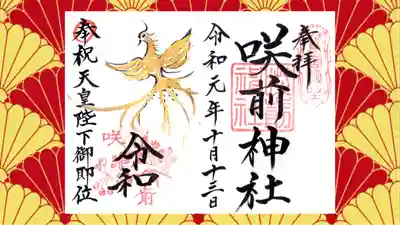 奉拝
咲前神社
令和元年十月十三日
令和
咲前
奉祝天皇陛下御即位